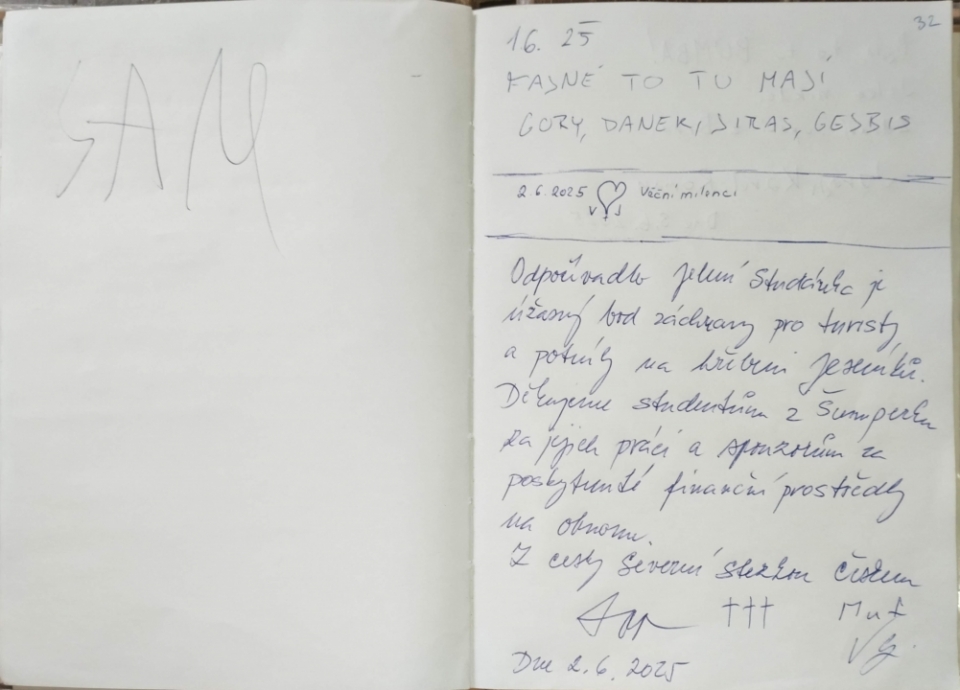 SAM
32
16. 25
FAJNÉ TO TU MAJÍ
GORY, DANEK, JIRAS, GESBIS
2.6.2025 Věční milenci
V + J
Odpočívadlo Jelení Studánka je
úžasný bod záchrany pro turisty
a potníky na hřebeni Jeseníků.
Děkujeme studentům z Šumperka
za jejich práci a sponzorům za
poskytnuté finanční prostředky
na obnovu.
Z cesty Severní stezkou Českem
†††
Dne 2.6.2025